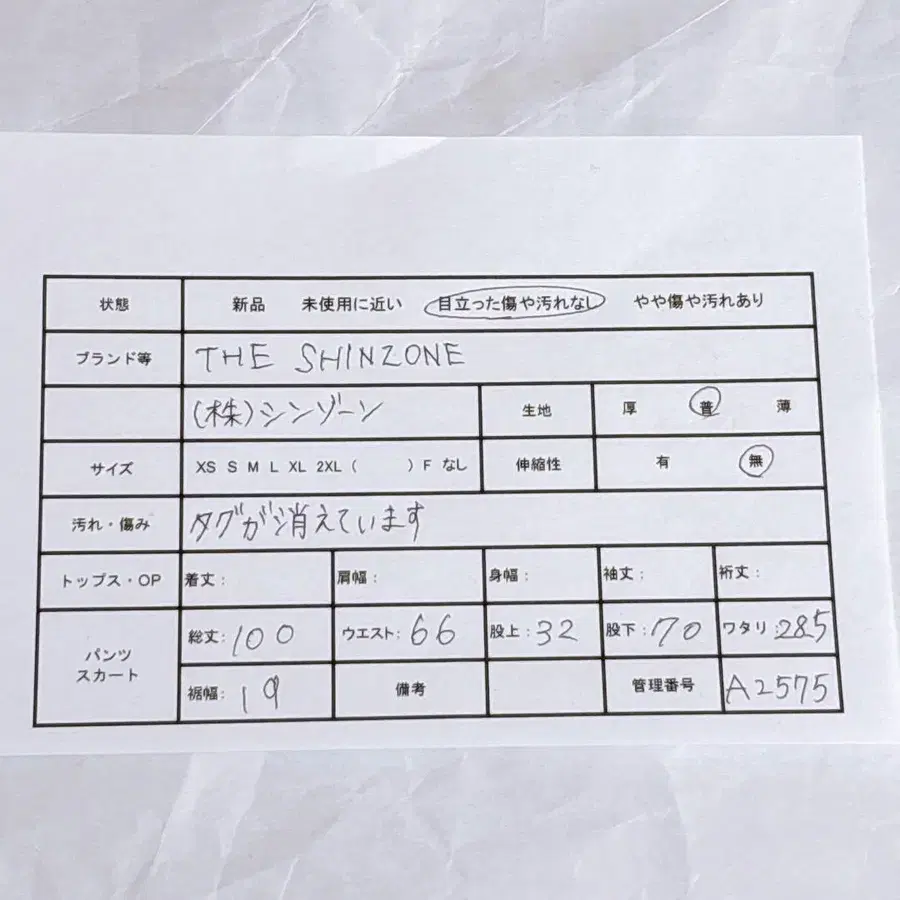 状態 新品 未使用に近い 目立った傷や汚れなし やや傷や汚れあり
ブランド等 THE SHINZONE
(株)シンゾーン 生地 厚 普 薄
サイズ XS S M L XL 2XL ( ) F なし 伸縮性 有 無
汚れ・傷み タグが消えています
トップス・OP 着丈: 肩幅: 身幅: 袖丈: 裄丈:
パンツ スカート 総丈:100 ウエスト:66 股上:32 股下:70 ワタリ:28.5
裾幅:19 備考 管理番号 A2575